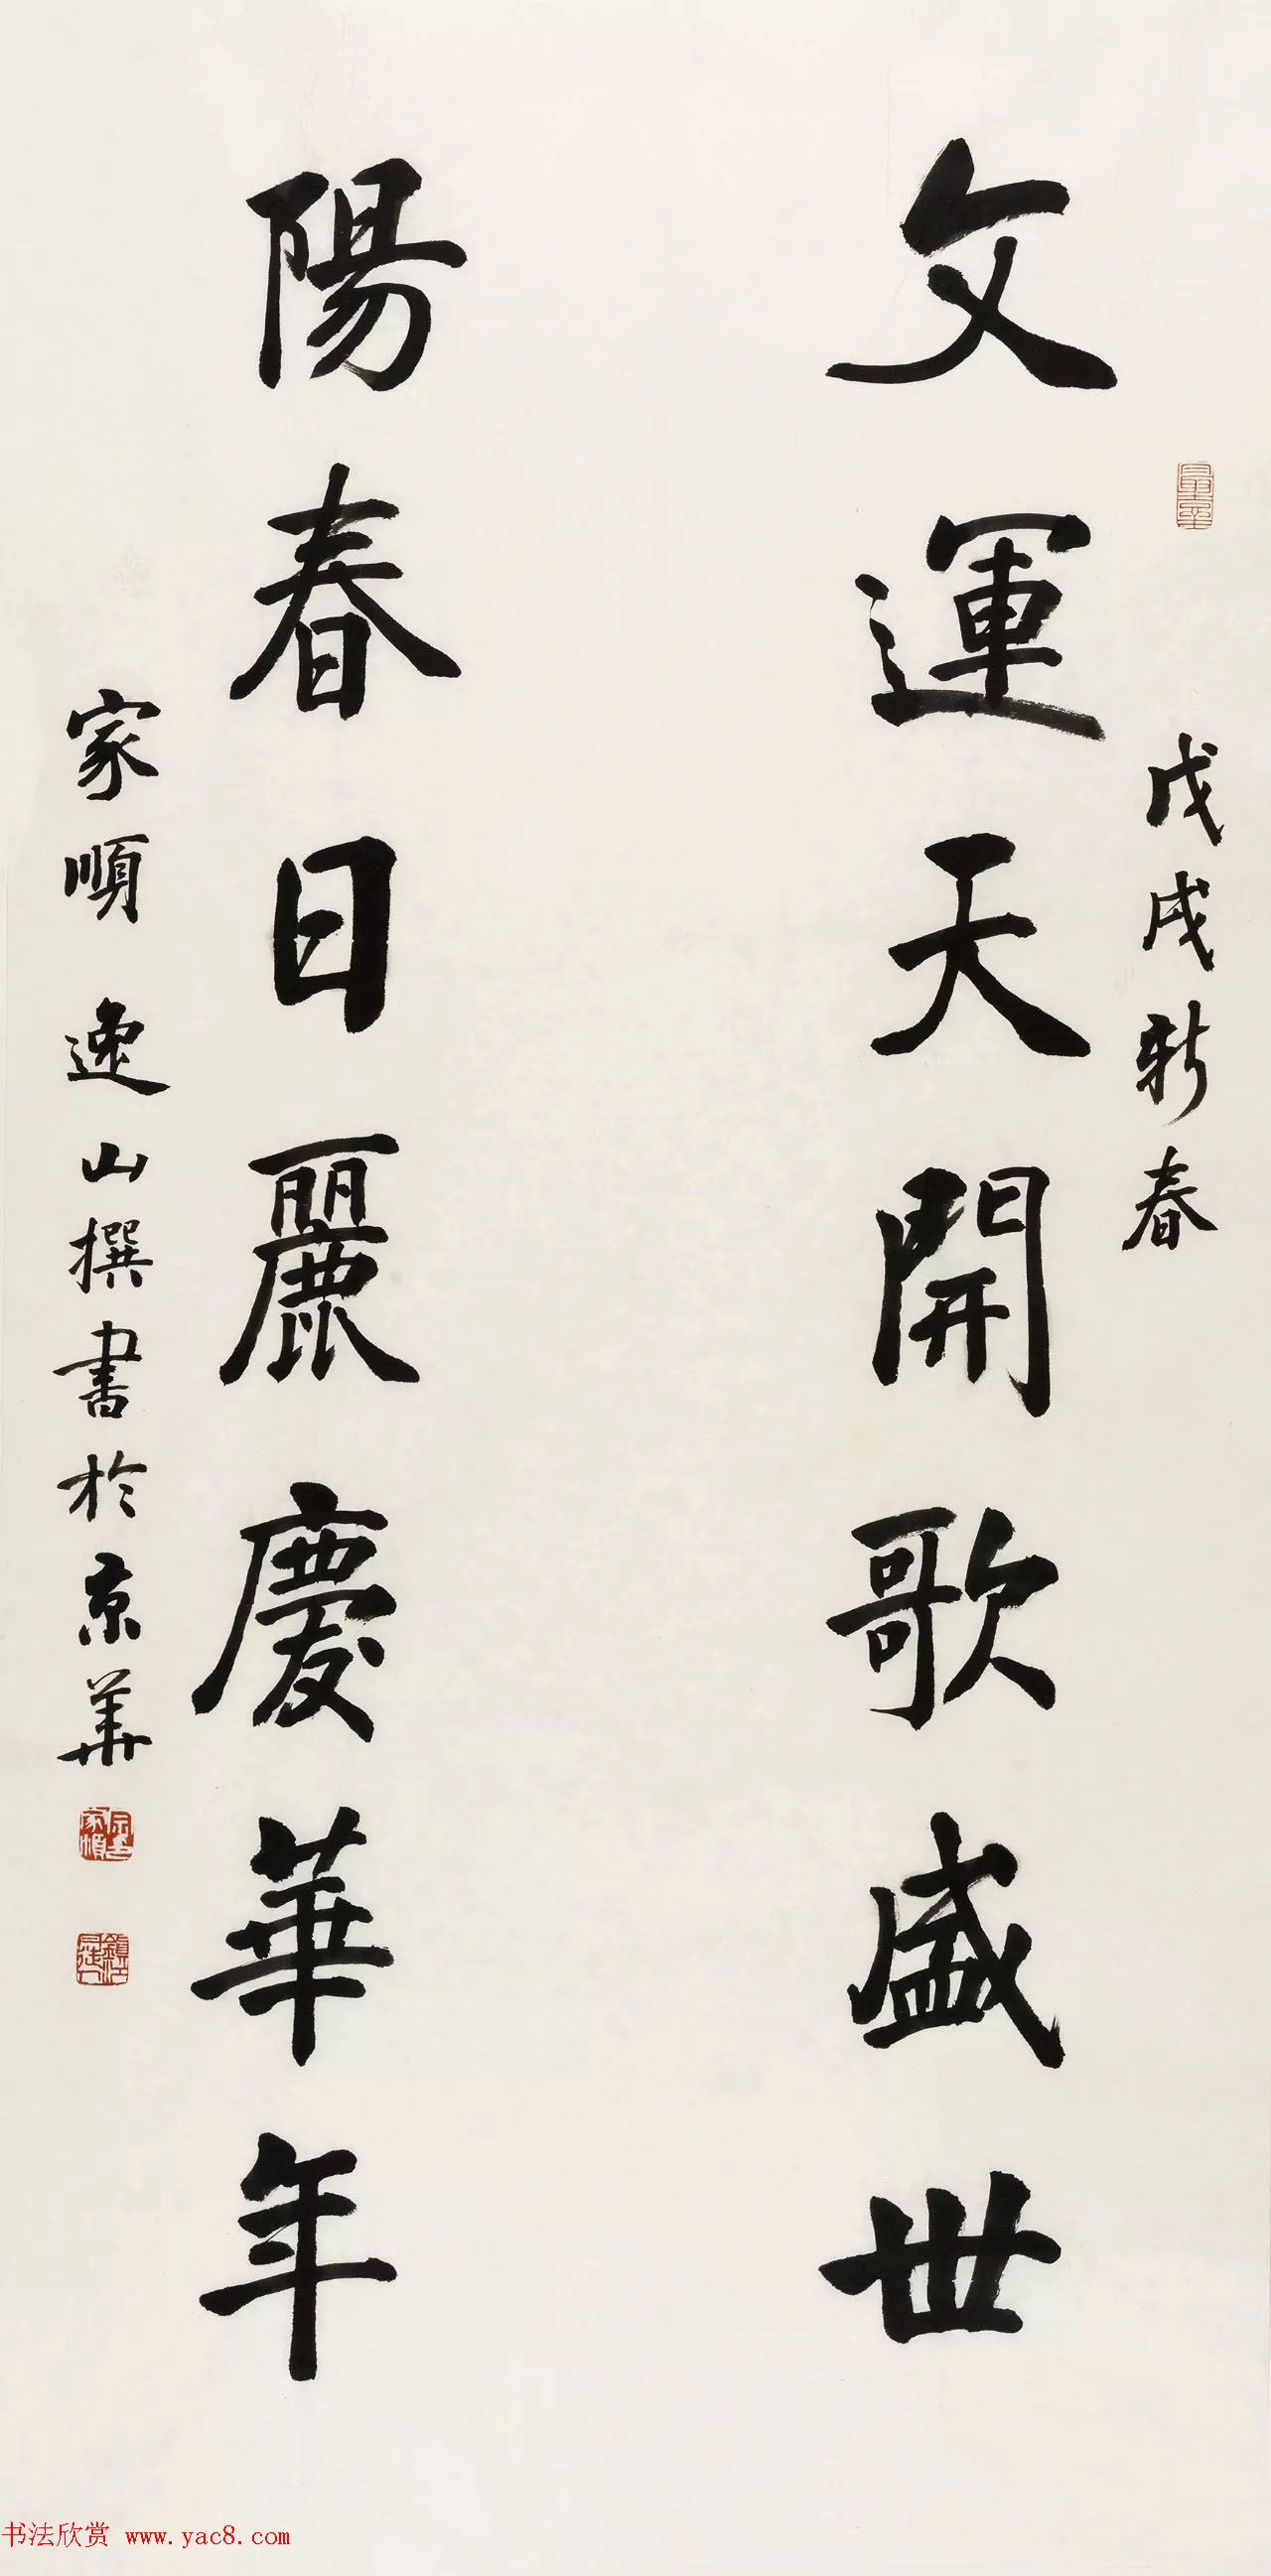 戊戌新春
文運天開歌盛世
陽春日麗慶華年
家順 逸山撰書於京華
书法欣赏 www.yac8.com